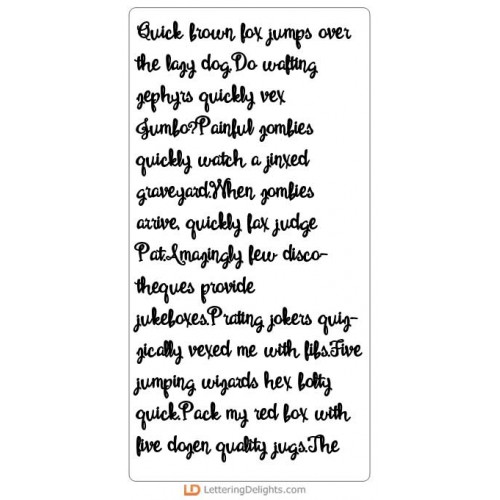 Quick brown fox jumps over
the lazy dog.Do wafting
zephyrs quickly vex
Jumbo?Painful zombies
quickly watch a jinxed
graveyard.When zombies
arrive, quickly fax judge
Pat.Amazingly few disco-
theques provide
jukeboxes.Prating jokers quiz-
zically vexed me with fibs.Five
jumping wizards hex bolty
quick.Pack my red box with
five dozen quality jugs.The
LD LetteringDelights.com